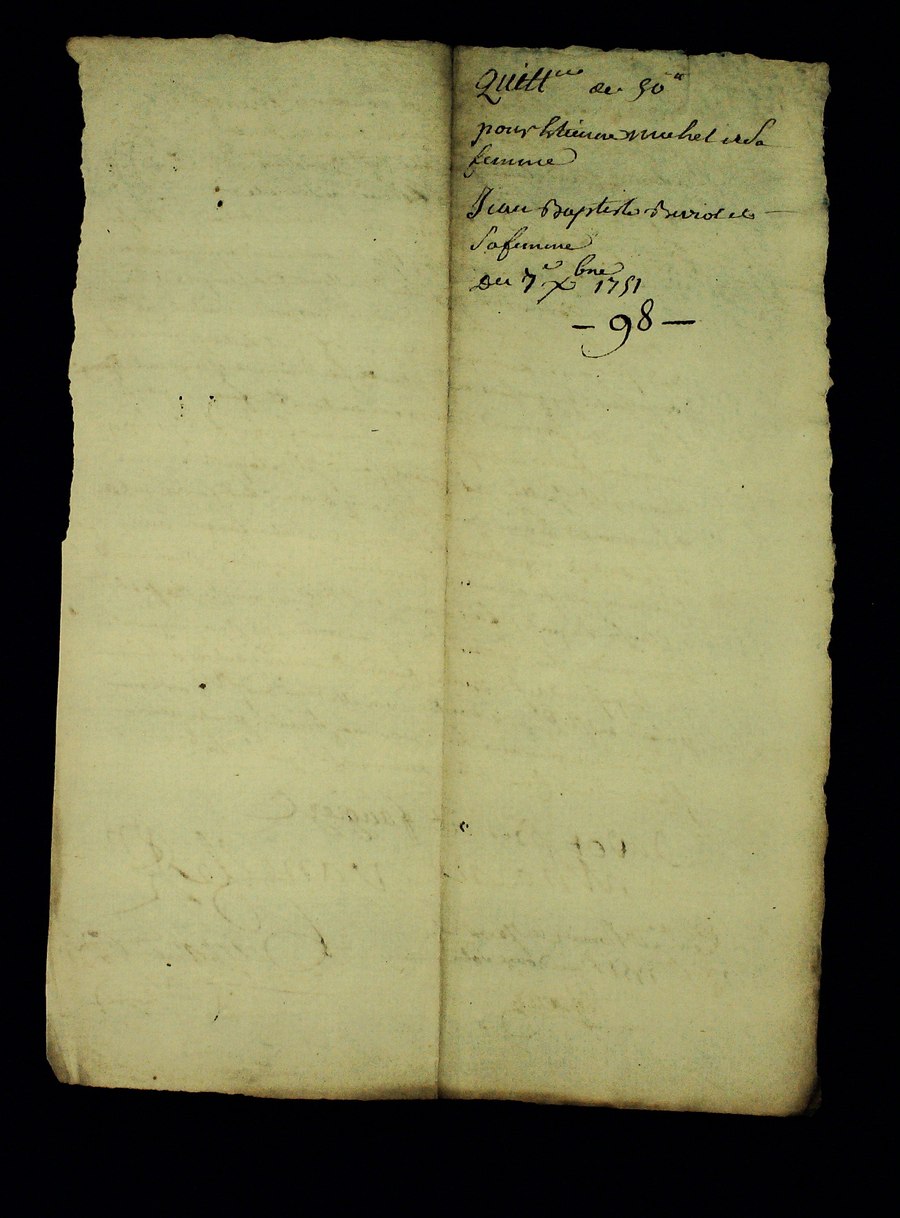 Quitt^ce de 50^tt
pour Estienne Michel et Sa
femme
Jean Baptiste et
Sa femme
Du 7^e X^bre 1751
- 98 -